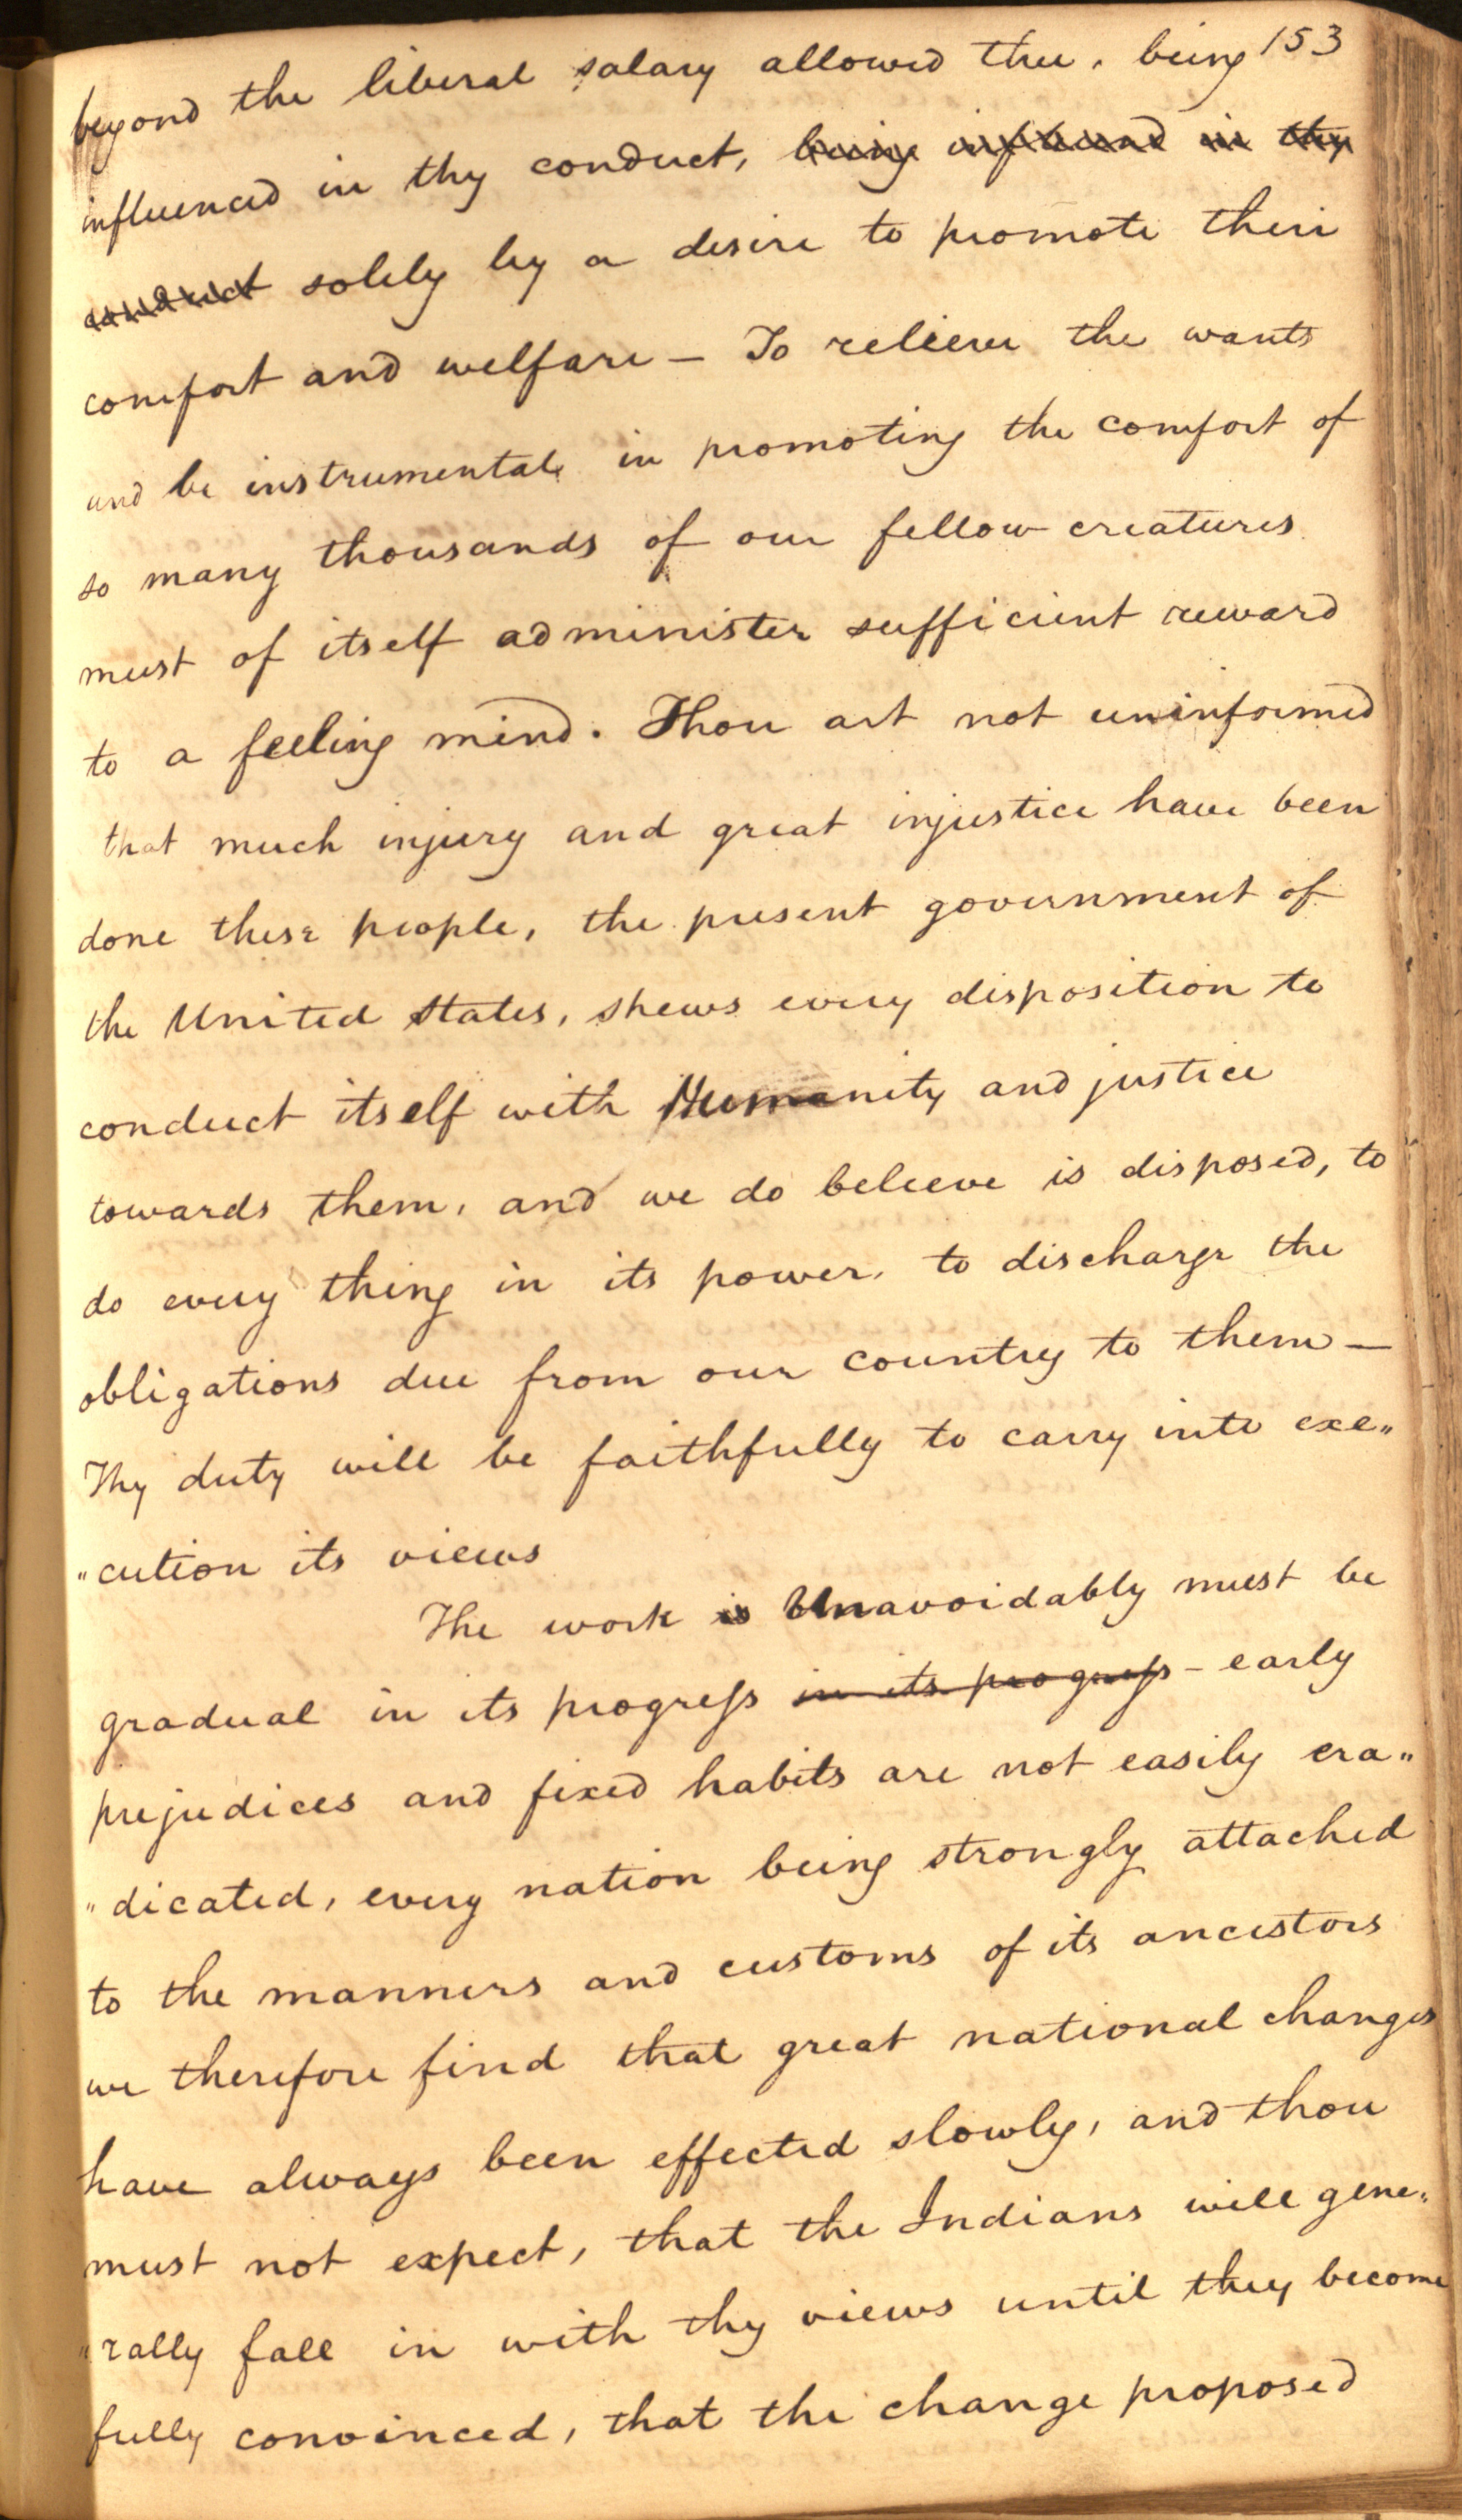 153
beyond the liberal salary allowed thee, being
influenced in thy conduct, being influenced in thy
conduct solely by a desire to promote their
comfort and welfare — To relieve the wants
and be instrumental, in promoting the comfort of
so many thousands of our fellow creatures
must of itself administer sufficient reward
to a feeling mind. Thou art not uninformed
that much injury and great injustice have been
done these people, the present government of
the United States, shews every disposition to
conduct itself with Humanity and justice
towards them, and we do beleeve is disposed, to
do every thing in its power, to discharge the
obligations due from our country to them —
Thy duty will be faithfully to carry into exe„
„cution its views
The work is Unavoidably must be
gradual in its progress in its progress – early
prejudices and fixed habits are not easily era„
„dicated, every nation being strongly attached
to the manners and customs of its ancestors
we therefore find that great national changes
have always been effected slowly, and thou
must not expect, that the Indians will gene„
„rally fall in with thy views until they become
fully convinced, that the change proposed